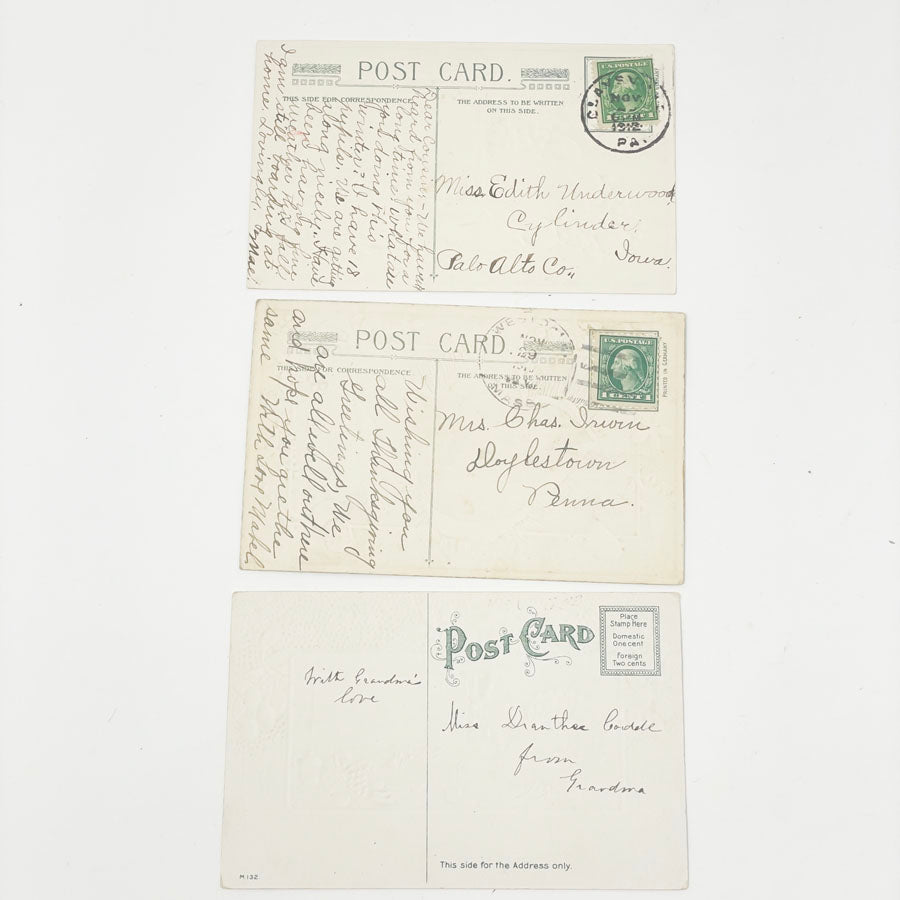 POST CARD.
THIS SIDE FOR CORRESPONDENCE
THE ADDRESS TO BE WRITTEN
ON THIS SIDE.
U.S. POSTAGE
NOV
1912
PA.
Dear Cousin:- We havent
heard from you for a
long time. What are
you doing this
winter? I have 18
pupils. We are getting
along nicely. Have
been having fine
weather this fall.
I am still boarding at
home. Lovingly, Mae.
Miss. Edith Underwood
Cylinder,
Palo Alto Co., Iowa.
POST CARD
THIS SIDE FOR CORRESPONDENCE
THE ADDRESS TO BE WRITTEN
ON THIS SIDE.
NOV
29
U.S. POSTAGE
1 CENT 1
PRINTED IN GERMANY
Wishing you
all Thanksgiving
Greetings, We
are all well out here
and hope you are the
same With Love Mabel
Mrs. Chas. Irwin
Doylestown
Penna.
POST CARD
Place
Stamp Here
Domestic
One cent
Foreign
Two cents
With Grandma's
love
Miss Dianthe
from
Grandma
This side for the Address only.
M.132